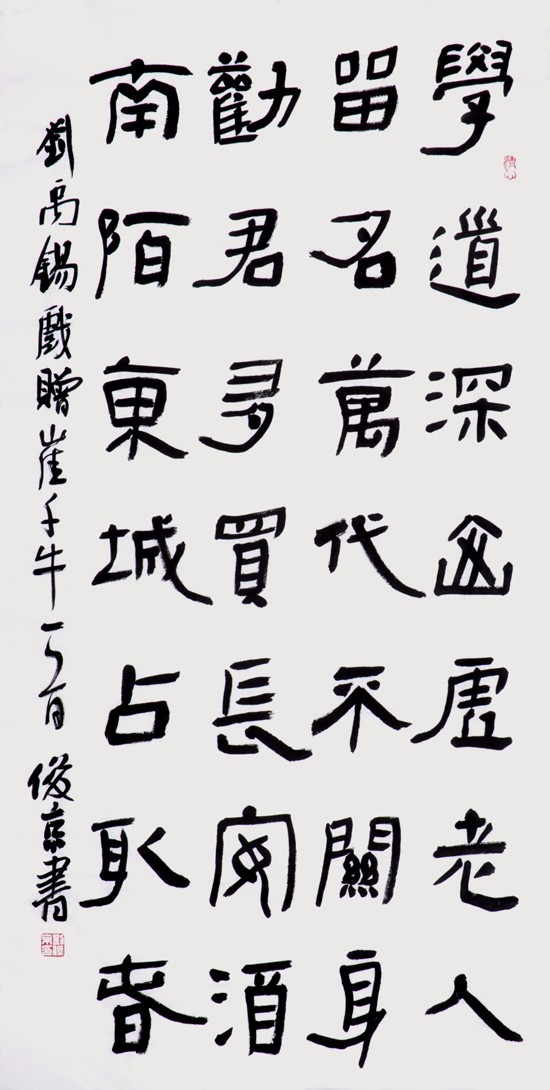 學道深山虛老人
留名萬代不關身
勸君多買長安酒
南陌東城占取春
劉禹錫戲贈崔千牛一首 俊京書